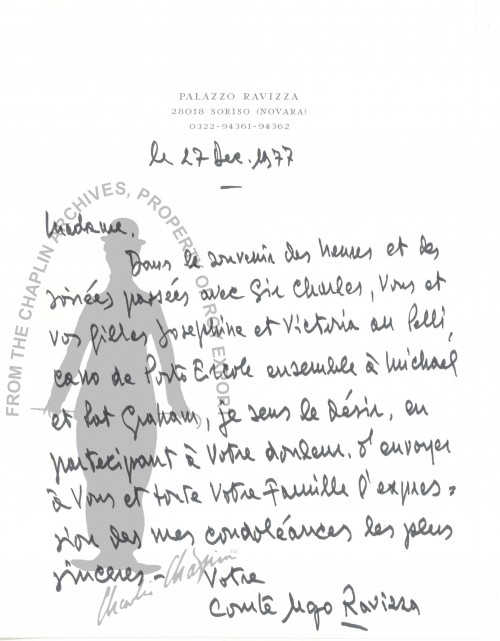 PALAZZO RAVIZZA
28018 SORISO (NOVARA)
0322-94361-94362
le 27 Dec. 1977
Madame,
Dans le souvenir des heures et des
soirées passées avec Sir Charles, Vous et
vos filles Josephine et Victoria au Pelli,
cano de Porto Ercole ensemble à Michael
et Pat Graham, je sens le désir, en
partecipant à Votre douleur, d'envoyer
à Vous et toute Votre Famille l'expres=
sion des mes condoléances les plus
sinceres -
Votre
Comte Ugo Ravizza
FROM THE CHAPLIN ARCHIVES, PROPERTY OF ROY EXPORT
Charlie Chaplin